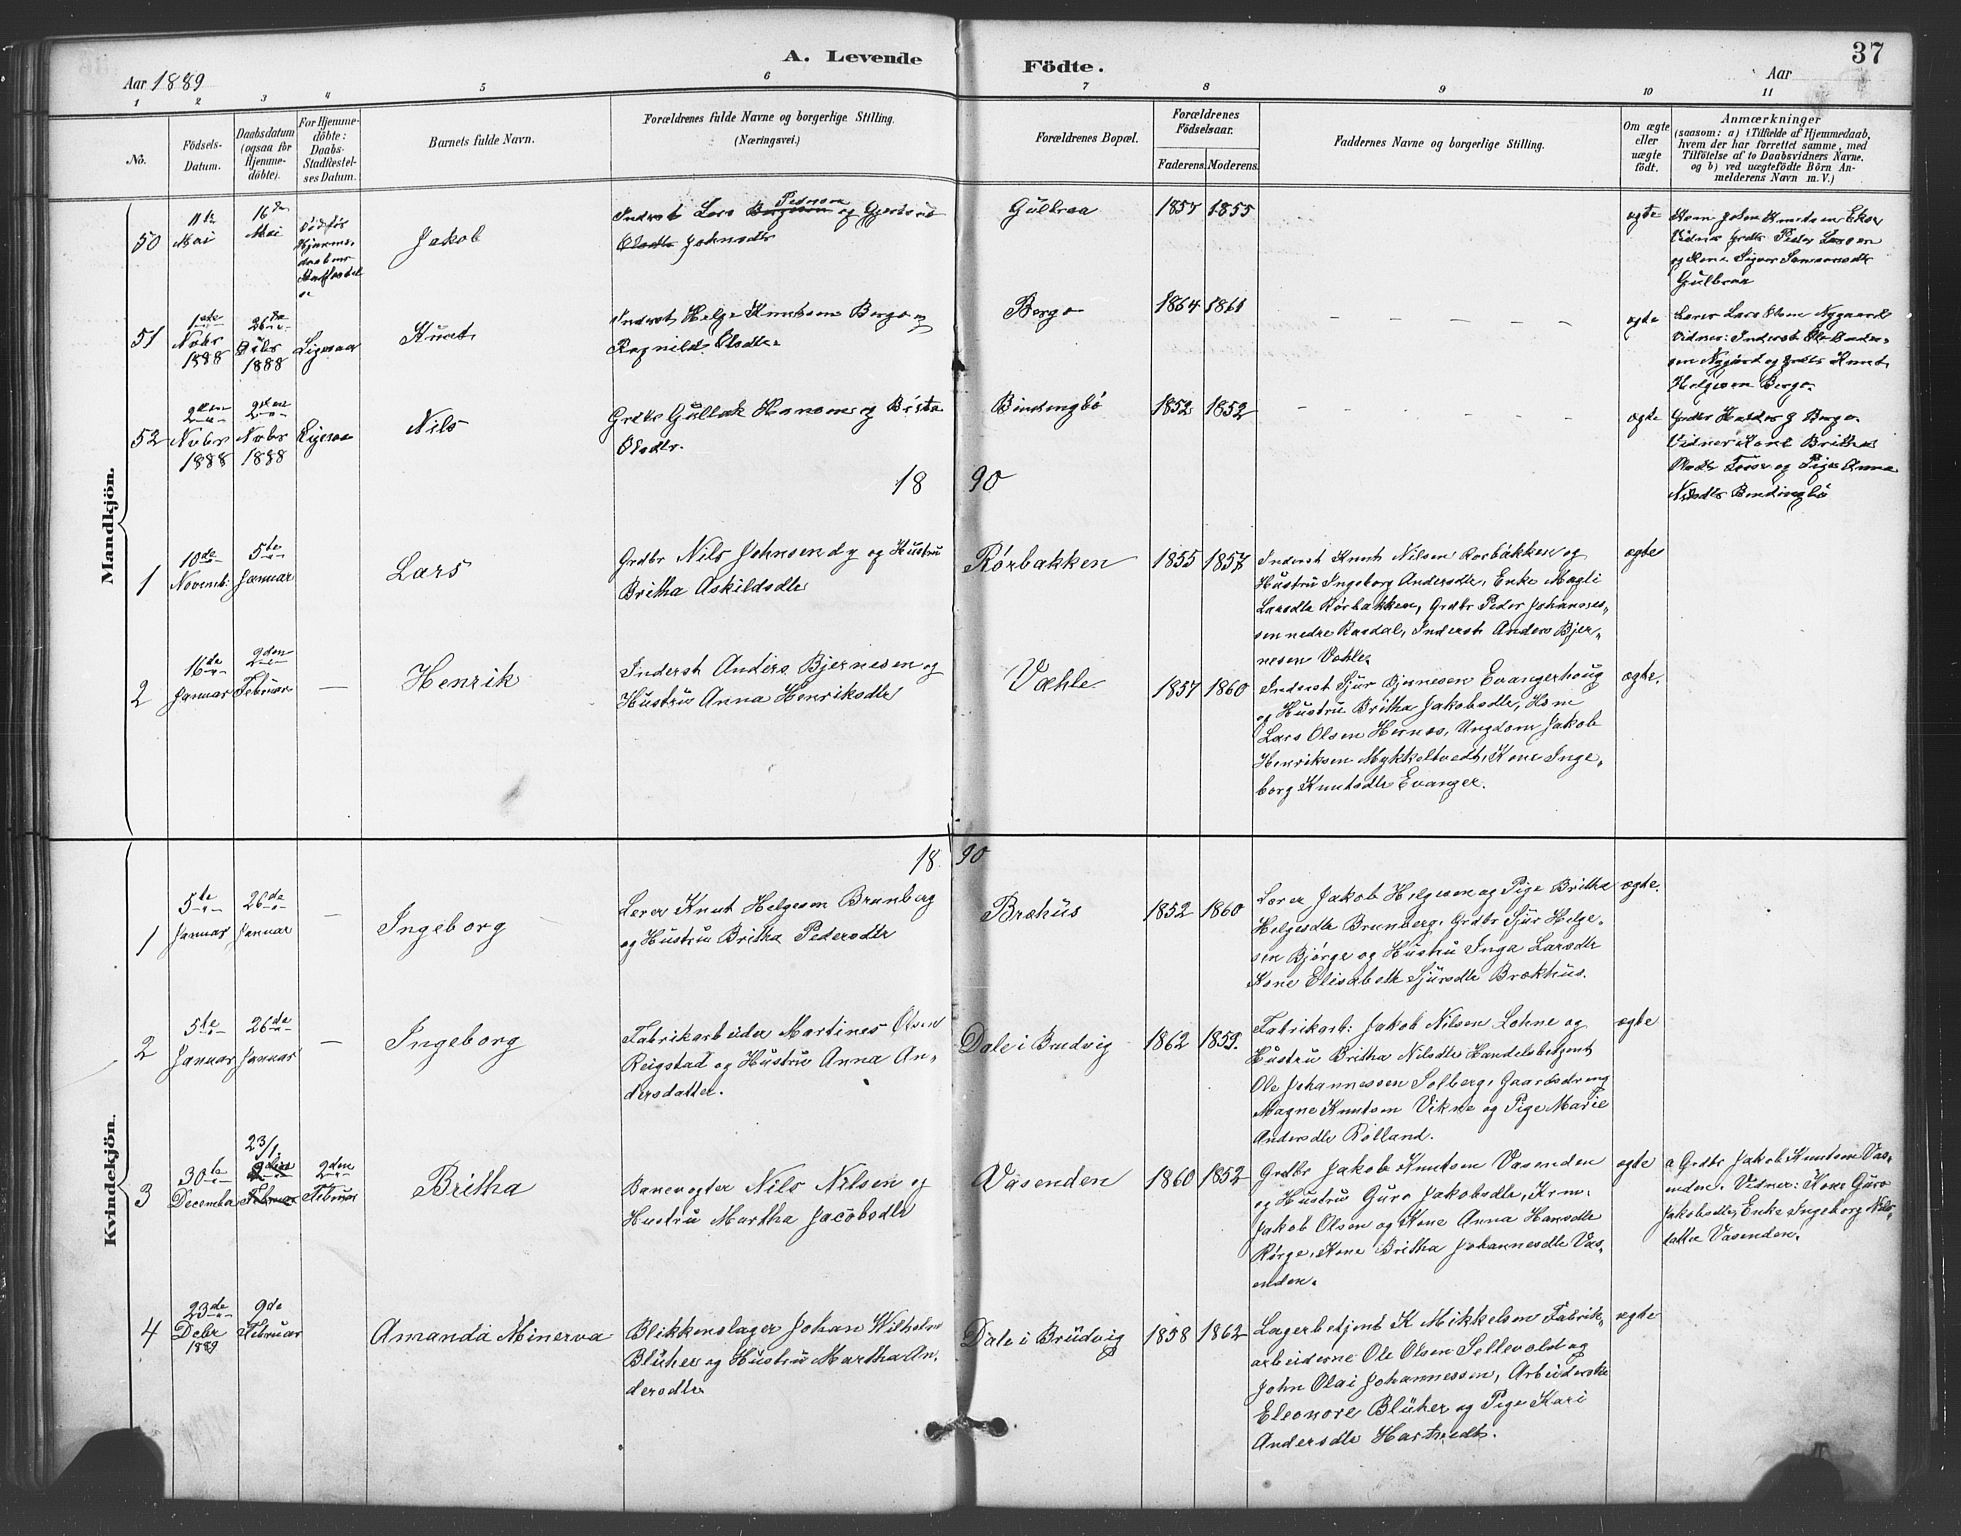 A. Levende
Födte.
37
Aar 1889
Aar
1 2 3 4 5 6 7 8 9 10 11
No.
Födsels-
Datum.
Daabsdatum
(ogsaa for
Hjemme-
döbte).
For Hjemme-
döbte:
Daabs-
Stadfæstel-
ses Datum.
Barnets fulde Navn.
Forældrenes fulde Navne og borgerlige Stilling.
(Næringsvei.)
Forældrenes Bopæl.
Forældrenes
Födselsaar.
Faderens. Moderens.
Faddernes Navne og borgerlige Stilling.
Om ægte
eller
uægte
födt.
Anmærkninger
(saasom: a) i Tilfælde af Hjemmedaab,
hvem der har forrettet samme, med
Tilföielse af to Daabsvidners Navne,
og b) ved uægtefödte Börn An-
melderens Navn m. V.)
Mandkjön.
50
11te
Mai
16de
Mai
Død før
Hjemme-
daabens
Stadfæstel
se
Jakob
Inderst Lars Pedersen og Gjertrud
Olsdtr Johnsdtr
Gulbraa
1857 1855
ægte
Kone Johan Knutsen Ekse
Vidner Grdbr Peder Larsen
og Kone Siger Samsonsdtr
Gulbraa
51
1ste
Novbr
1888
26de
1888
Ligesaa
Knut
Inderst Helge Knutsen Bergo og
Ragnilde Olsdtr
Bergo
1864 1861
– – – – –
ægte
Lærer Lars Olsen Nygaard
Vidner: Inderst Ole Anders-
sen Nygård og Grdbr Knut
Helgesen Bergo.
52
2den
Novbr
1888
2den
Novbr
1888
Ligesaa
Nils
Grdbr Gullak Hansen og Brita
Olsdtr.
Bindingbö
1852 1852
– – – – –
ægte
Grdbr Haldor J Bergo.
Vidner Kone Britha
Olsdtr Fosse og Pige Anna
Nilsdtr Bindingbö
18 90
1
10de
Novemb:
5te
Januar
Lars
Grdbr Nils Johnsen d y og Hustru
Britha Askildsdtr
Rörbakken
1855 1857
Inderst Knut Nilsen Rorbakken og
Hustru Ingeborg Andersdtr, Enke Magli
Larsdtr Rörbakken, Grdbr Peder Johannes-
sen nedre Rasdal, Inderst Anders Bjer-
nesen Væhle.
ægte
2
16de
Januar
2den
Februar
—
Henrik
Inderst Anders Bjernesen og
Hustru Anna Henriksdtr
Væhle
1857 1860
Inderst Sjur Bjernesen Evangerhoug
og Hustru Britha Jakobsdtr, Hsm
Lars Olsen Hernæs, Ungdom Jakob
Henriksen Mykkeltvedt, Kone Inge-
borg Knutsdtr Evanger.
ægte.
Kvindekjön.
18 90
1
5te
Januar
26de
Januar
—
Ingeborg
Lærer Knut Helgesen Brunberg
og Hustru Britha Pedersdtr
Brækhus
1852 1860
Lærer Jakob Helgesen og Pige Britha
Helgesdtr Brunberg, Grdbr Sjur Helge-
sen Bjørge og Hustru Inga Larsdtr
Kone Elisabeth Sjursdtr Brækhus.
ægte.
2
5te
Januar
26de
Januar
—
Ingeborg
Fabrikarbeider Martines Olsen
Reigstad og Hustru Anna An-
dersdatter.
Dale i Brudvig
1862 1859.
Fabrikarb: Jakob Nilsen Lohne og
Hustru Britha Nilsdtr Handelsbetjent
Ole Johannessen Solberg, Gaardsdreng
Magne Knutsen Vikne og Pige Marie
Andersdtr Rolland.
ægte
3
30te
Decembr
23/1.
2den
Februar
2den
Februar
Britha
Banevogter Nils Nilsen og
Hustru Martha Jacobsdtr
Vasenden
1860 1852
Grdbr Jakob Knutsen Vasenden
og Hustru Guro Jakobsdtr, Krm.
Jakob Olsen og Kone Anna Hansdtr
Rørge, Kone Britha Johannesdtr Vas-
enden.
ægte
a Grdbr Jakob Knutsen Vas-
enden. Vidner: Kone Guro
Jakobsdtr, Enke Ingeborg Nils-
datter Vasenden.
4
23de
Debr
1889
9de
Februar
Amanda Minerva
Blikkenslager Johan Wilhelm
Blüher og Hustru Martha An-
dersdtr
Dale i Brudvig
1858 1862
Lagerbetjent K Mikkelsen Fabrik-
arbeiderne Ole Olsen Sellevold og
John Olai Johannessen, Arbeiderske
Eleonore Blüher og Pige Kari
Andersdtr Hartvedt.
ægte